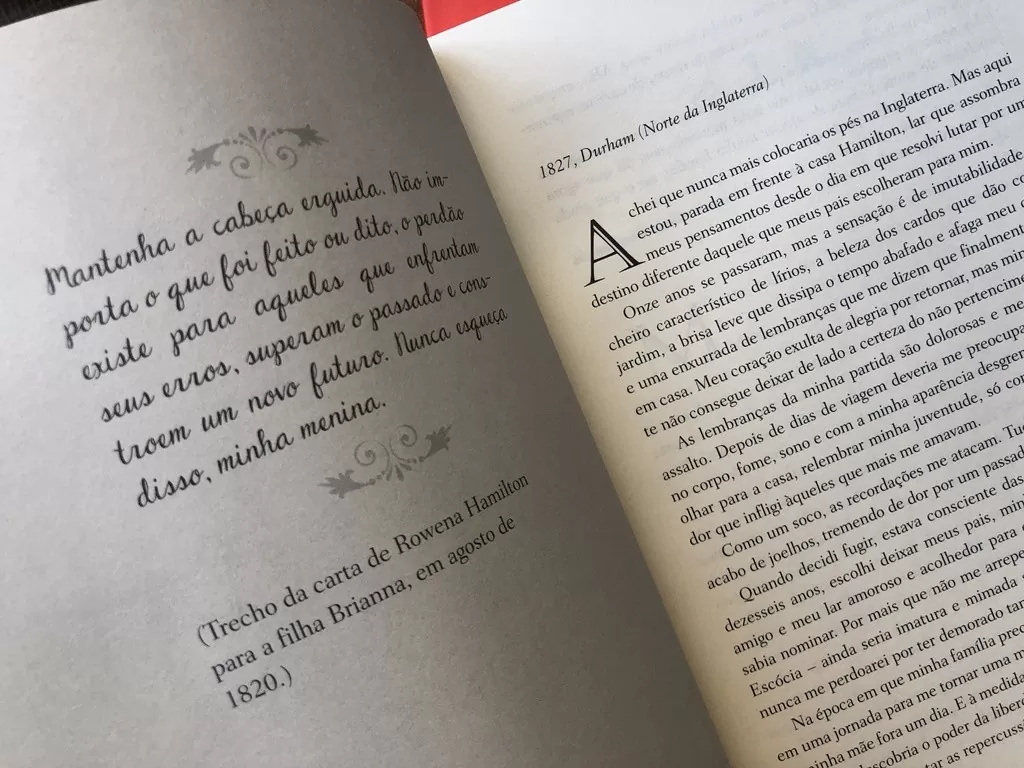 Mantenha a cabeça erguida. Não im-
porta o que foi feito ou dito, o perdão
existe para aqueles que enfrentam
seus erros, superam o passado e cons-
troem um novo futuro. Nunca esqueça
disso, minha menina.
(Trecho da carta de Rowena Hamilton
para a filha Brianna, em agosto de
1820.)
1827, Durham (Norte da Inglaterra)
Achei que nunca mais colocaria os pés na Inglaterra. Mas aqui
estou, parada em frente à casa Hamilton, lar que assombra
meus pensamentos desde o dia em que resolvi lutar por um
destino diferente daquele que meus pais escolheram para mim.
Onze anos se passaram, mas a sensação é de imutabilidade
cheiro característico de lírios, a beleza dos cardos que dão co
jardim, a brisa leve que dissipa o tempo abafado e afaga meu
e uma enxurrada de lembranças que me dizem que finalment
em casa. Meu coração exulta de alegria por retornar, mas min
te não consegue deixar de lado a certeza do não pertencim
As lembranças da minha partida são dolorosas e me
assalto. Depois de dias de viagem deveria me preocupa
no corpo, fome, sono e com a minha aparência desgren
olhar para a casa, relembrar minha juventude, só co
dor que infligi àqueles que mais me amavam.
Como um soco, as recordações me atacam. Tud
acabo de joelhos, tremendo de dor por um passad
Quando decidi fugir, estava consciente das
dezesseis anos, escolhi deixar meus pais, min
amigo e meu lar amoroso e acolhedor para
sabia nominar. Por mais que não me arrepe
Escócia – ainda seria imatura e mimada
nunca me perdoarei por ter demorado tan
Na época em que minha família prec
em uma jornada para me tornar uma m
minha mãe fora um dia. E à medida
descobria o poder da liber
tar as repercuss